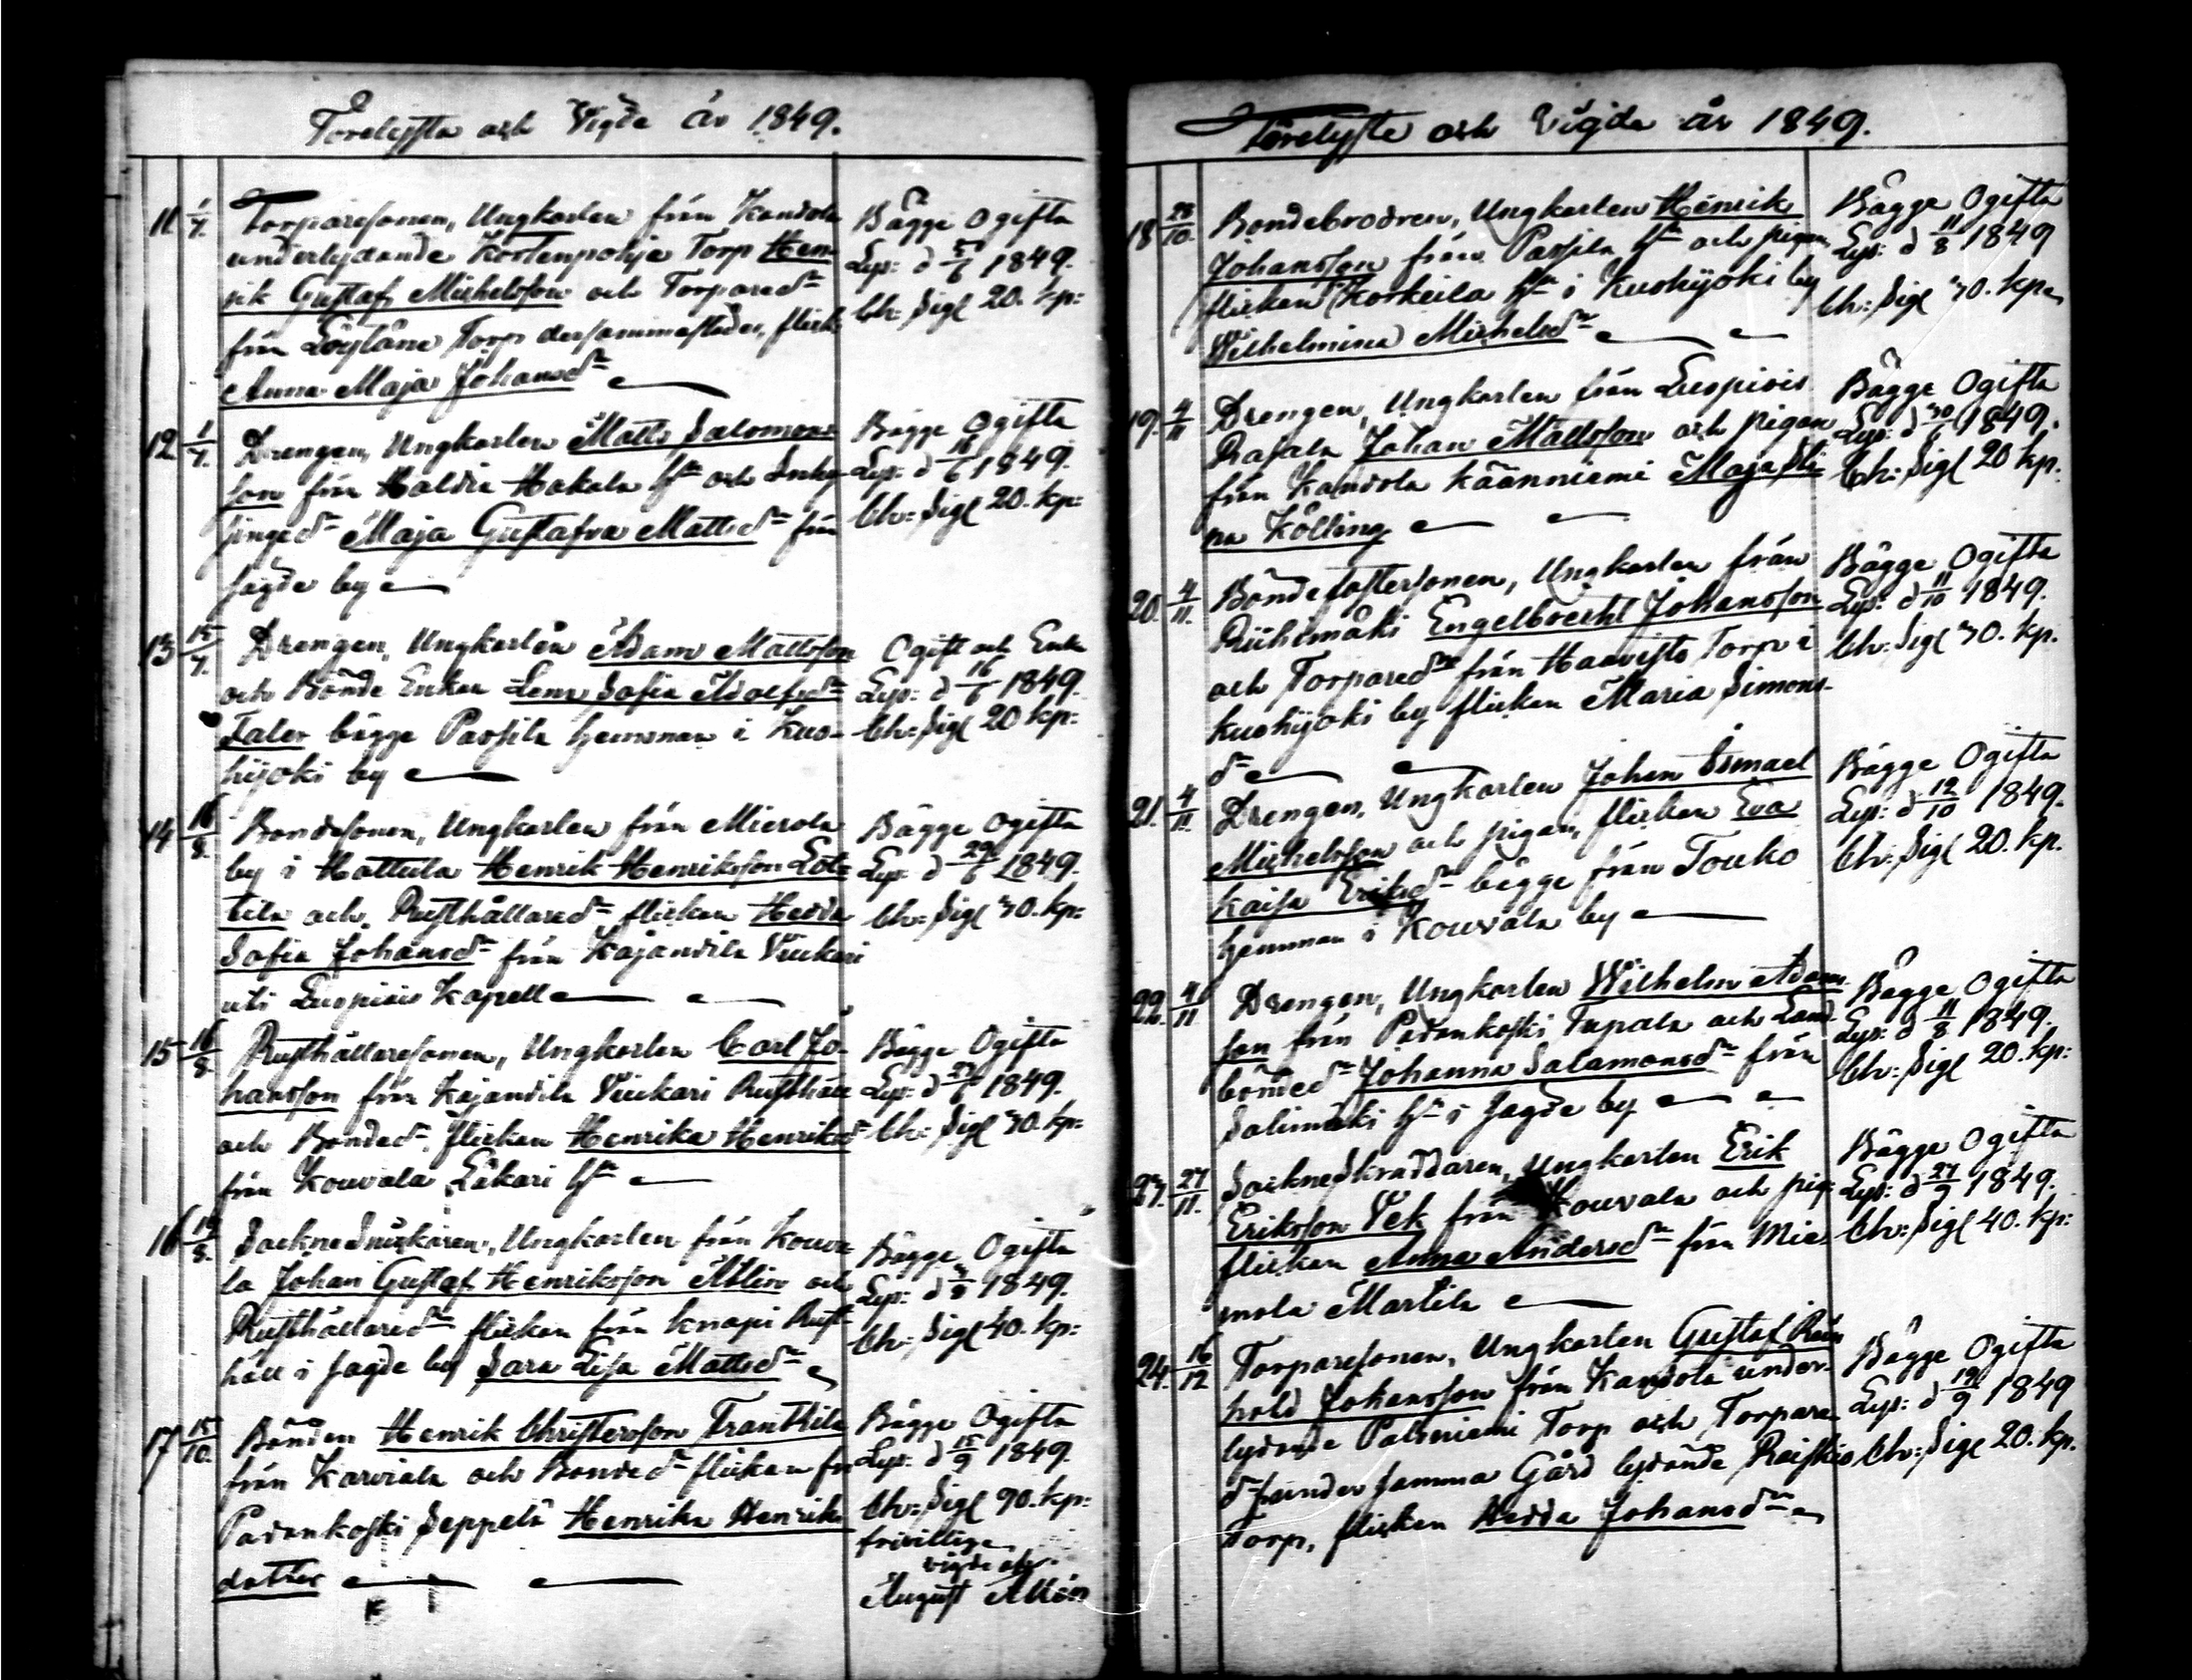 Förelyste och Vigde år 1849.
11 1/7. Torparesonen, Ungkarlen från Kandola Bägge Ogifta
underlydande Kortenpohja Torp Hen- Lys: d 1849.
rik Gustaf Michelsson och Torpared:r Ch: Sigl 20. kp:
från Löyläne Torp dersammastädes, flick.
Anna Maja Johansd:r
12 1/7. Drengen, Ungkarlen Matts Salomons- Bägge Ogifta
son från Haldia Hakala H:n och Inhy- Lys: d 16/6 1849.
singed:r Maja Gustafva Mattsd:r från Ch: Sigl 20. kp:
sagde by
13 15/7. Drengen, Ungkarlen Adam Mattsson Ogift och Enka
och Bonde Enkan Lena Sofia Adolfsd:r Lys: d 16/6 1849.
Taler bägge Passila hemman i Kuo- Ch: Sigl 20 kp:
hijoki by
14 16/8. Bondesonen, Ungkarlen från Mierola Bägge Ogifta
by i Hattula Henrik Henriksson Lot- Lys: d 29/6 1849.
tila och Rusthållared:r flickan Hedda Ch: Sigl 30. kp:
Sofia Johansd:r från Kajandila Viukari
uti Luopiois Kapell
15 16/8. Rusthållaresonen, Ungkarlen Carl Jo- Bägge Ogifta
hansson från Kajandila Viukari Rusthåll Lys: d 1849.
och Bonded:r flickan Henrika Henriksd:r Ch: Sigl 30. kp:
från Kouvala Likari H:n
16 19/8. Sockne Snickaren, Ungkarlen från Kouva- Bägge Ogifta
la Johan Gustaf Henriksson Ahlin och Lys: d 1849.
Rusthållared:r flickan från Knapi Rust- Ch: Sigl 40. kp:
håll i sagde by Sara Lisa Mattsd:r
17 15/10. Bonden Henrik Christersson Tranthila Bägge Ogifta
från Karviala och Bonded:r flickan från Lys: d 15/9 1849.
Padankoski Seppelä Henrika Henriks- Ch: Sigl 90. kp:
dotter frivillige
vigde af
August Ahlén
Förelyste och Vigde år 1849.
18 28/10. Bondebrodren, Ungkarlen Henrik Bägge Ogifta
Johansson från Passila H:n och pigan, Lys: d 11/8 1849
flickan Korkeila H:n i Kuohijoki by Ch: Sigl 30. kp:
Wilhelmina Michelsd:r
19. 4/11 Drengen, Ungkarlen från Luopiois Bägge Ogifta
Rasala Johan Mattsson och pigan Lys: d 1849.
från Kandola Käänniemi Maja Sti- Ch: Sigl 20 kp.
na Kölling
20. 4/11. Bondefostersonen, Ungkarlen från Bägge Ogifta
Riihimäki Engelbrecht Johansson Lys: d 11/10 1849.
och Torpared:r från Haavisto Torp i Ch: Sigl 30. kp.
Kuohijoki by flickan Maria Simons-
d:r
21. 4/11. Drengen, Ungkarlen Johan Ismael Bägge Ogifta
Michelsson och pigan, flickan Eva Lys: d 12/10 1849.
Kaisa Eriksd:r bägge från Touko Ch: Sigl 20. kp.
hemman i Kouvala by
22. 4/11 Drengen, Ungkarlen Wilhelm Adams- Bägge Ogifta
son från Padankoski Tupala och Land- Lys: d 11/8 1849.
bonded:r Johanna Salamonsd:r från Ch: Sigl 20. kp:
Salimäki H:n i sagde by
23. 27/11. Sockneskräddaren, Ungkarlen Erik Bägge Ogifta
Eriksson Vek från Kouvala och pig: Lys: d 27/9 1849.
flickan Anna Andersd:r från Mie- Ch: Sigl 40. kp:
mola Martila
24. 16/12 Torparesonen, Ungkarlen Gustaf Rein- Bägge Ogifta
hold Johansson från Kandola under- Lys: d 19/9 1849
lydande Palsniemi Torp och Torpare- Ch: Sigl 20. kp.
d:r under samma Gård lydande Raiskio
Torp, flickan Hedda Johansd:r